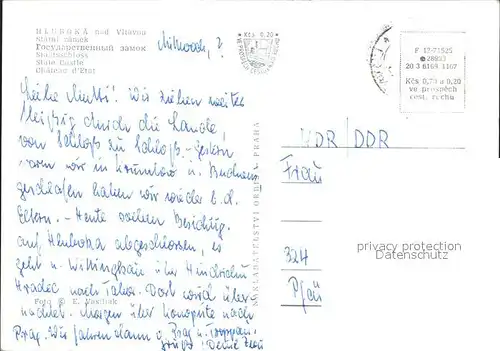 HLUBOKÁ nad Vltavou
Státní zámek
Государственный замок
Staatsschloss
State Castle
Château d'État
Mittwoch, ?
Kčs 0,20
F 17-71525
28893
20 3 6168 1167
Kčs 0,70 a 0,20
ve prospěch
cest. ruchu
Liebe Mutti! Wir ziehen weiter
fleißig durch die Lande,
von Schloß zu Schloß - gestern
waren wir in Krumlov u. Budweis
geschlafen haben wir wieder b. d.
Eltern. - Heute Besichtig.
auf Hluboka abgeschlossen, es
geht n. Wittingbau über
Hradec nach Tabor. Dort wird über-
nachtet. Morgen über Konopiste nach
Prag. Wir fahren dann v. Prag n. Troppau.
Foto © E. Vasiliak
NAKLADATELSTVÍ ORBIS, PRAHA
NDR/DDR
Frau
324
privacy protection
ansichtskarten-lexikon.de